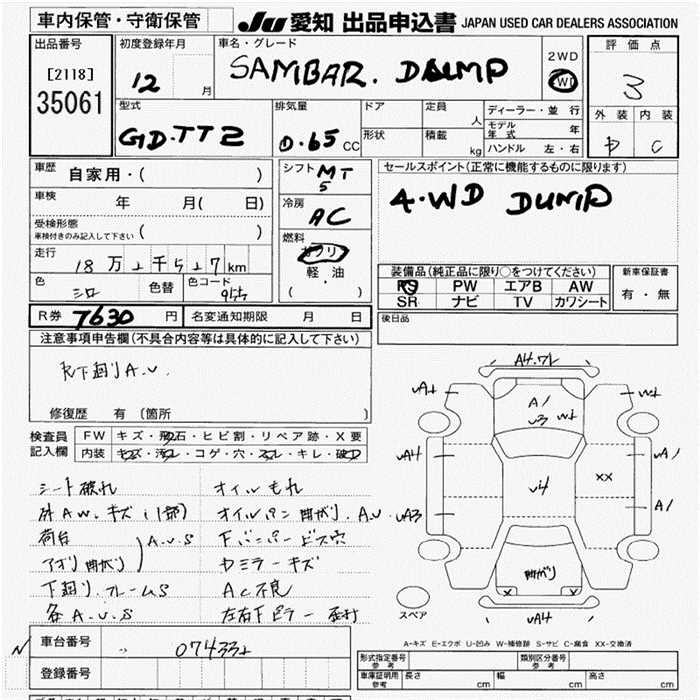 車内保管・守衛保管
JU 愛知 出品申込書 JAPAN USED CAR DEALERS ASSOCIATION
出品番号 初度登録年月 車名・グレード 評価点
[2118] 12 月 SAMBAR. DUMP 2WD 4WD 3
35061
型式 排気量 ドア 定員 人 ディーラー・並行 外装 内装
GD.TT2 0.65 CC 形状 積載 kg モデル年式 年 D C
ハンドル 左・右
車歴 自家用・( ) シフト MT 5 セールスポイント(正常に機能するものに限ります)
車検 年 月( 日) 冷房 AC 4.WD DUMP
受検形態 ( )
車検付きのみ記入して下さい
燃料 ガソリン 軽油 ( )
走行 18万 千5 7km
装備品(純正品に限り○をつけてください) 新車保証書
色 シロ 色替 色コード PS PW エアB AW 有・無
SR ナビ TV カワシート
R券 7630 円 名変通知期限 月 日 後日品
注意事項申告欄(不具合内容等は具体的に記入して下さい)
R下廻りA.U.
修復歴 有 (箇所 )
検査員記入欄 FW キズ・飛石・ヒビ割・リペア跡・X要
内装 キズ・汚れ・コゲ・穴・スレ・キレ・破れ
シート破れ オイルもれ
外AW.キズ オイルパン曲がり.A.U.
荷台 A.U.S 下バンパービス穴
アオリ曲がり ヤミラーキズ
下廻りフレームS AC不良
各A.U.S 左右下ピラー歪み
UA1 A1 U3 W1
UA4 U4 XX
UA3 A1
曲がり X X
スペア UA4
A-キズ E-エクボ U-凹み W-補修跡 S-サビ C-腐食 XX-交換済
車台番号
登録番号
形式指定番号 参考 類別区分番号 参考
車庫証明用 参考 長さ cm 幅 cm 高さ cm